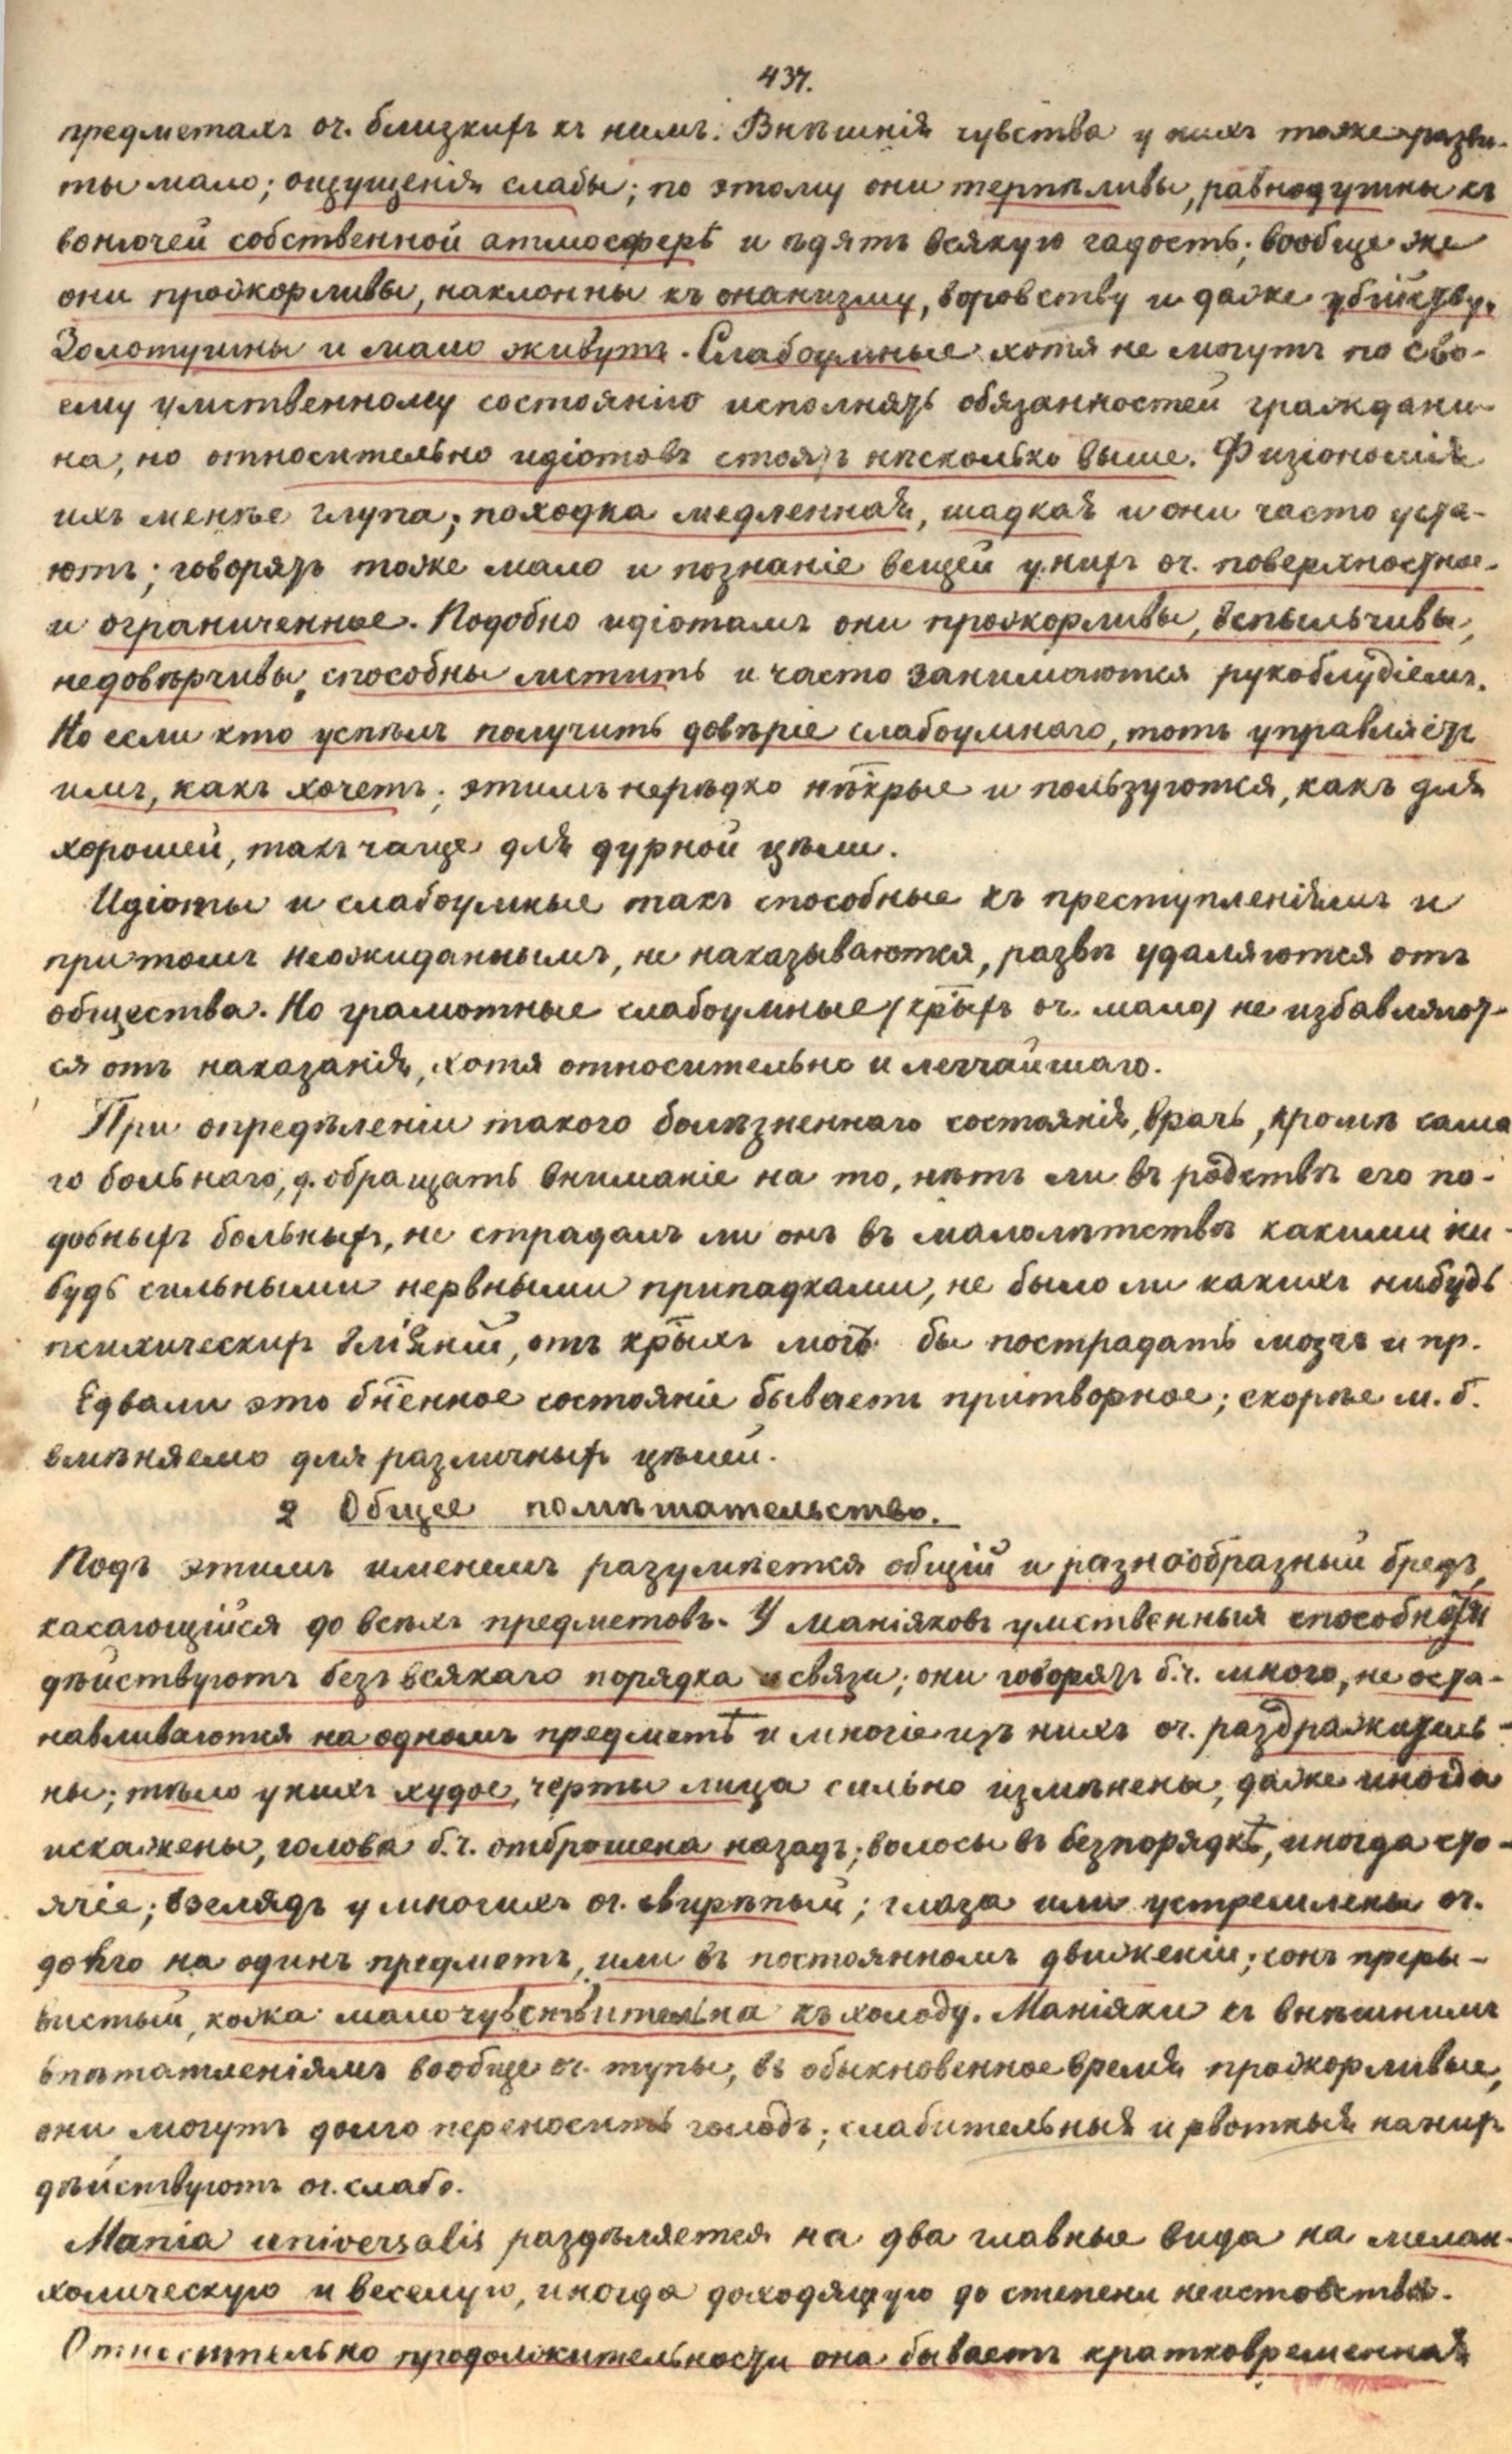 437.
предметахъ оч. близкихъ къ нимъ. Внѣшнія чувства у нихъ тоже разви-
ты мало; ощущенія слабы; по этому они терпѣливы, равнодушны къ
вонючей собственной атмосферѣ и ѣдятъ всякую гадость; вообще же
они прожорливы, наклонны къ онанизму, воровству и даже убійству.
Золотушны и мало живутъ. Слабоумные хотя не могутъ по сво-
ему умственному состоянію исполнять обязанностей граждани-
на, но относительно идіотовъ стоятъ нѣсколько выше. Физіономія
ихъ менѣе глупа; походка медленная, шадкая и они часто уста-
ютъ; говорятъ тоже мало и познаніе вещей у нихъ оч. поверхностное
и ограниченное. Подобно идіотамъ они прожорливы, вспыльчивы,
недовѣрчивы, способны мстить и часто занимаются рукоблудіемъ.
Но если кто успѣлъ получить довѣріе слабоумнаго, тотъ управляетъ
имъ, какъ хочетъ; этимъ нерѣдко нѣкрые и пользуются, какъ для
хорошей, такъ чаще для дурной цѣли.
Идіоты и слабоумные такъ способные къ преступленіямъ и
притомъ неожиданнымъ, не наказываются, развѣ удаляются отъ
общества. Но грамотные слабоумные (крыхъ оч. мало) не избавляют-
ся отъ наказанія, хотя относительно и легчайшаго.
При опредѣленіи такого болѣзненнаго состоянія, врачъ, кромѣ сама
го больнаго, д. обращать вниманіе на то, нѣтъ ли въ родствѣ его по-
добныхъ больныхъ, не страдалъ ли онъ въ малолѣтствѣ какими ни-
будь сильными нервными припадками, не было ли какихъ нибудь
психическихъ вліяній, отъ крыхъ могъ бы пострадать мозгъ и пр.
Едвали это бнѣенное состояніе бываетъ притворное; скорѣе м. б.
вмѣняемо для различныхъ цѣлей.
2 Общее помѣшательство.
Подъ этимъ именемъ разумѣется общій и разнообразный бредъ,
касающійся до всѣхъ предметовъ. У маніяковъ умственныя способности
дѣйствуютъ безъ всякаго порядка и связи; они говорятъ б.ч. много, не оста-
навливаются на одномъ предметѣ и многіе изъ нихъ оч. раздражитель-
ны; тѣло у нихъ худое, черты лица сильно измѣнены, даже иногда
искажены, голова б.ч. отброшена назадъ; волосы въ безпорядкѣ, иногда сто-
ячіе; взглядъ у многихъ оч. свирѣпый; глаза или устремлены оч.
долго на одинъ предметъ, или въ постоянномъ движеніи; сонъ преры-
вистый, кожа мало чувствительна къ холоду. Маніяки къ внѣшнимъ
впѣтатленіямъ вообще оч. тупы, въ обыкновенное время прожорливые,
они могутъ долго переносить голодъ; слабительныя и рвотныя на нихъ
дѣйствуютъ оч. слабо.
Mania universalis раздѣляется на два главные вида на мелан-
холическую и веселую, иногда доходящую до степени неистовства.
Относительно продолжительности она бываетъ кратковременная